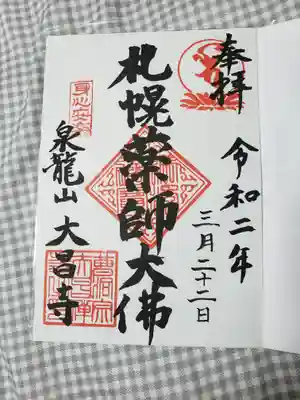 奉拝
令和二年
三月二十二日
札幌薬師大佛
身心安楽
泉龍山 大昌寺